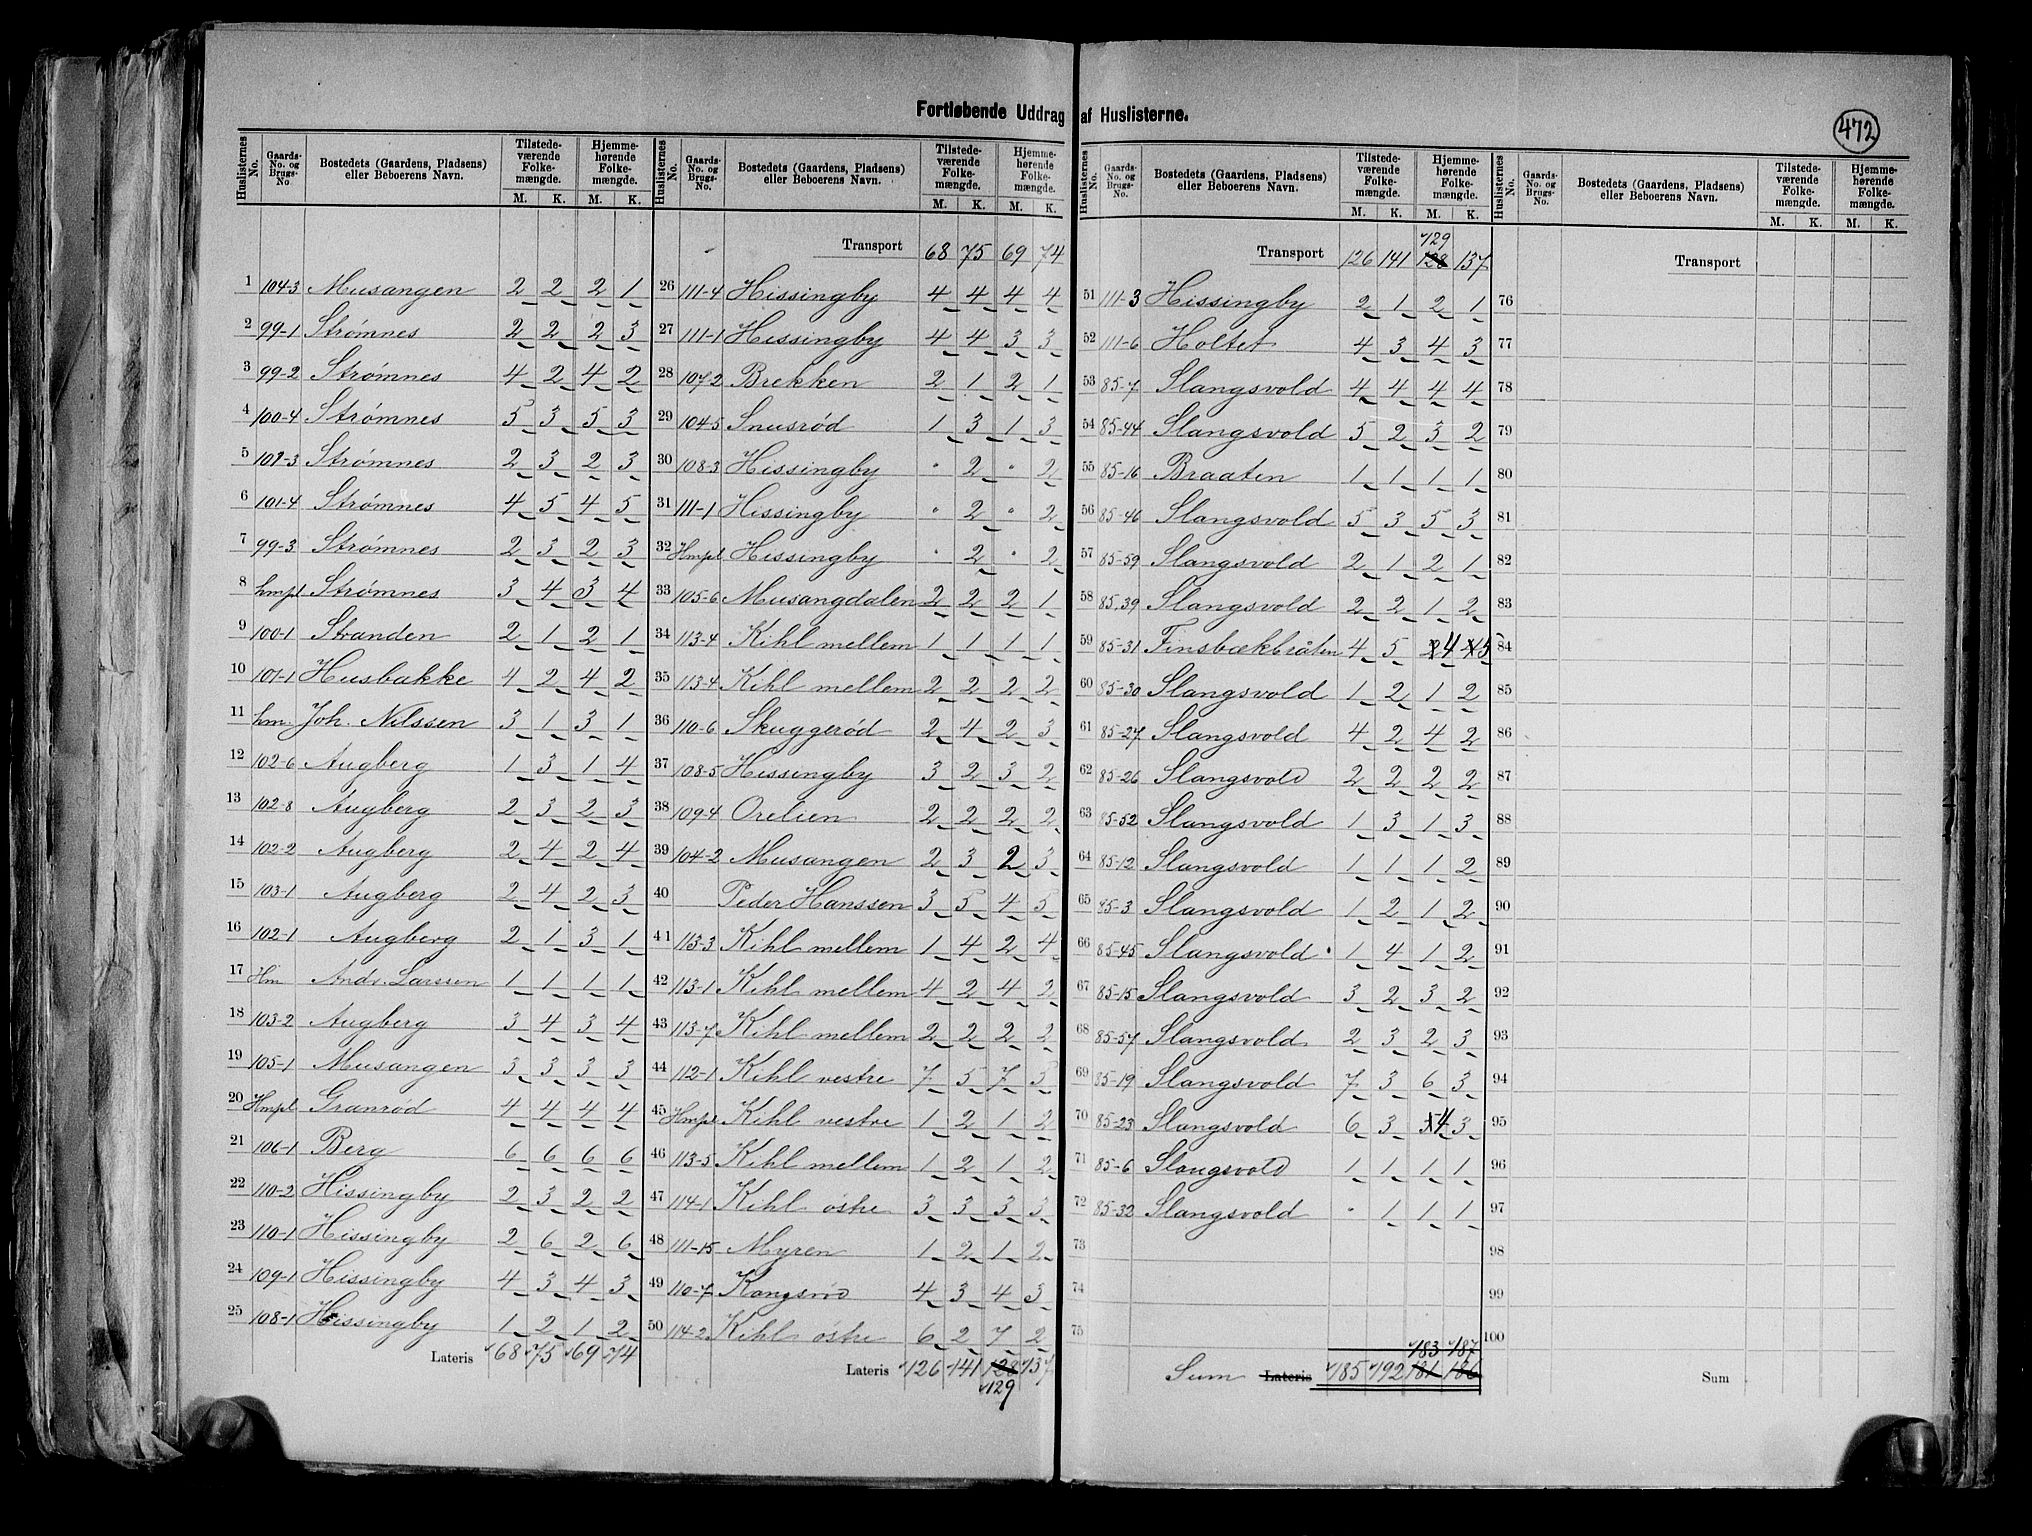 Fortløbende Uddrag af Huslisterne.
472
Huslisternes No. Gaards-No. og Brugs-No. Bostedets (Gaardens, Pladsens) eller Beboerens Navn. Tilstedeværende Folkemængde. M. K. Hjemmehørende Folkemængde. M. K.
1 104-3 Musangen 2 2 2 1
2 99-1 Strømnes 2 2 2 3
3 99-2 Strømnes 4 2 4 2
4 100-4 Strømnes 5 3 5 3
5 101-3 Strømnes 2 3 2 3
6 101-4 Strømnes 4 5 4 5
7 99-3 Strømnes 2 3 2 3
8 hmpl Strømnes 3 4 3 4
9 100-1 Stranden 2 1 2 1
10 101-1 Husbakke 4 2 4 2
11 hm. Joh. Nilssen 3 1 3 1
12 102-6 Augberg 1 3 1 4
13 102-8 Augberg 2 3 2 3
14 102-2 Augberg 2 4 2 4
15 103-1 Augberg 2 4 2 3
16 102-1 Augberg 2 1 3 1
17 Hm Andr. Larssen 1 1 1 1
18 103-2 Augberg 3 4 3 4
19 105-1 Musangen 3 3 3 3
20 Hmpl Granrød 4 4 4 4
21 106-1 Berg 6 6 6 6
22 110-2 Hissingby 2 3 2 2
23 110-1 Hissingby 2 6 2 6
24 109-1 Hissingby 4 3 4 3
25 108-1 Hissingby 1 2 1 2
Lateris 68 75 69 74
Huslisternes No. Gaards-No. og Brugs-No. Bostedets (Gaardens, Pladsen) eller Beboerens Navn. Tilstedeværende Folkemængde. M. K. Hjemmehørende Folkemængde. M. K.
Transport 68 75 69 74
26 111-4 Hissingby 4 4 4 4
27 111-1 Hissingby 4 4 3 3
28 107-2 Brekken 2 1 2 1
29 104-5 Snusrød 1 3 1 3
30 108-3 Hissingby " 2 " 2
31 111-1 Hissingby " 2 " 2
32 Hmpl Hissingby " 2 " 2
33 105-6 Musangdalen 2 2 2 1
34 113-4 Kihl mellem 1 1 1 1
35 113-4 Kihl mellem 2 2 2 2
36 110-6 Skuggerød 2 4 2 3
37 108-5 Hissingby 3 2 3 2
38 109-4 Orelien 2 2 2 2
39 104-2 Musangen 2 3 2 3
40 Peder Hanssen 3 5 4 5
41 113-3 Kihl mellem 1 4 2 4
42 113-1 Kihl mellem 4 2 4 2
43 113-7 Kihl mellem 2 2 2 2
44 112-1 Kihl vestre 7 5 7 5
45 Hmpl Kihl vestre 1 2 1 2
46 113-5 Kihl mellem 1 2 1 2
47 114-1 Kihl østre 3 3 3 3
48 111-15 Myren 1 2 1 2
49 110-7 Kongsrød 4 3 4 3
50 114-2 Kihl østre 6 2 7 2
Lateris 126 141 128 137
129
Huslisternes No. Gaards-No. og Brugs-No. Bostedets (Gaardens, Pladsens) eller Beboerens Navn. Tilstedeværende Folkemængde. M. K. Hjemmehørende Folkemængde. M. K.
129
Transport 126 141 128 137
51 111-3 Hissingby 2 1 2 1
52 111-6 Holtet 4 3 4 3
53 85-7 Slangsvold 4 4 4 4
54 85-44 Slangsvold 5 2 3 2
55 85-16 Braaten 1 1 1 1
56 85-46 Slangsvold 5 3 5 3
57 85-59 Slangsvold 2 1 2 1
58 85.39 Slangsvold 2 2 1 2
59 85-31 Finsbækbråten 4 5 4 5
60 85-30 Slangsvold 1 2 1 2
61 85-27 Slangsvold 4 2 4 2
62 85-26 Slangsvold 2 2 2 2
63 85-52 Slangsvold 1 3 1 3
64 85-12 Slangsvold 1 1 1 2
65 85-3 Slangsvold 1 2 1 2
66 85-45 Slangsvold 1 4 1 2
67 85-15 Slangsvold 3 2 3 2
68 85-57 Slangsvold 2 3 2 3
69 85-19 Slangsvold 7 3 6 3
70 85-23 Slangsvold 6 3 4 3
71 85-6 Slangsvold 1 1 1 1
72 85-32 Slangsvold " 1 1 1
73
74
75
183 187
Sum Lateris 185 192 181 186
Huslisternes No. Gaards-No. og Brugs-No. Bostedets (Gaardens, Pladsens) eller Beboerens Navn. Tilstedeværende Folkemængde. M. K. Hjemmehørende Folkemængde. M. K.
Transport
76
77
78
79
80
81
82
83
84
85
86
87
88
89
90
91
92
93
94
95
96
97
98
99
100
Sum